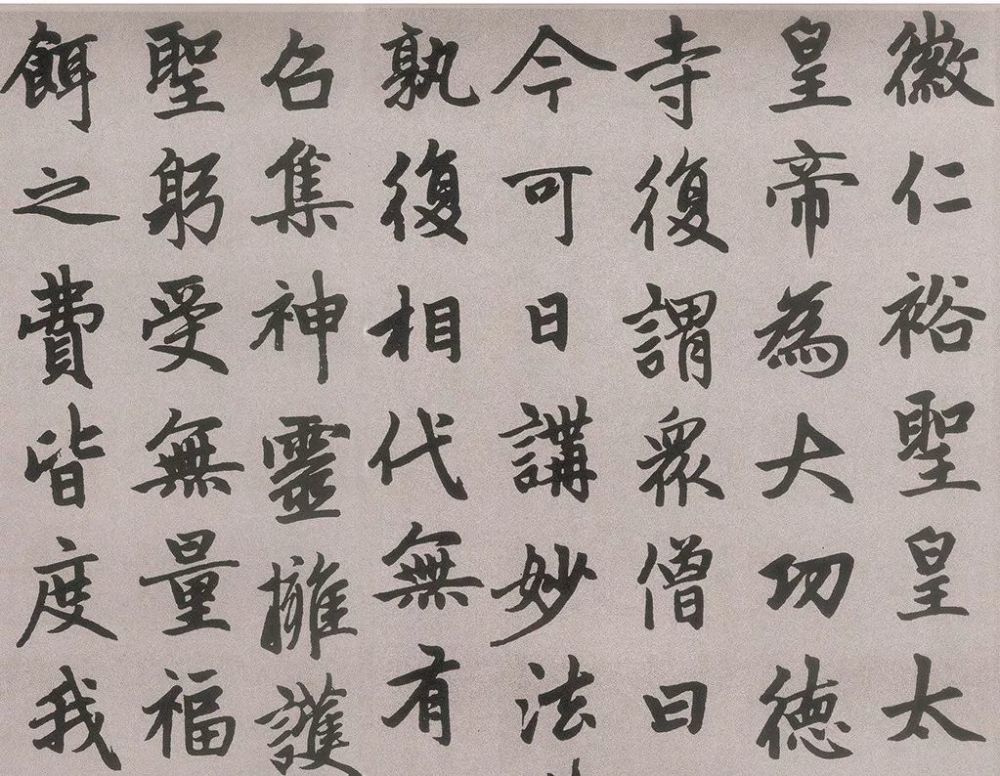 徽仁裕聖皇太
皇帝為大功德
寺復謂衆僧曰
今可日講妙法
孰復相代無有
召集神靈擁護
聖躬受無量福
餌之費皆度我